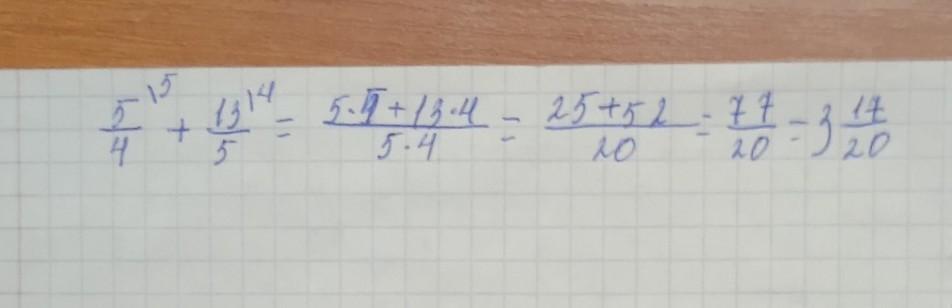 5/4 \5 + 13/5 \4 = (5·5+13·4)/(5·4) = (25+52)/20 = 77/20 = 3 17/20